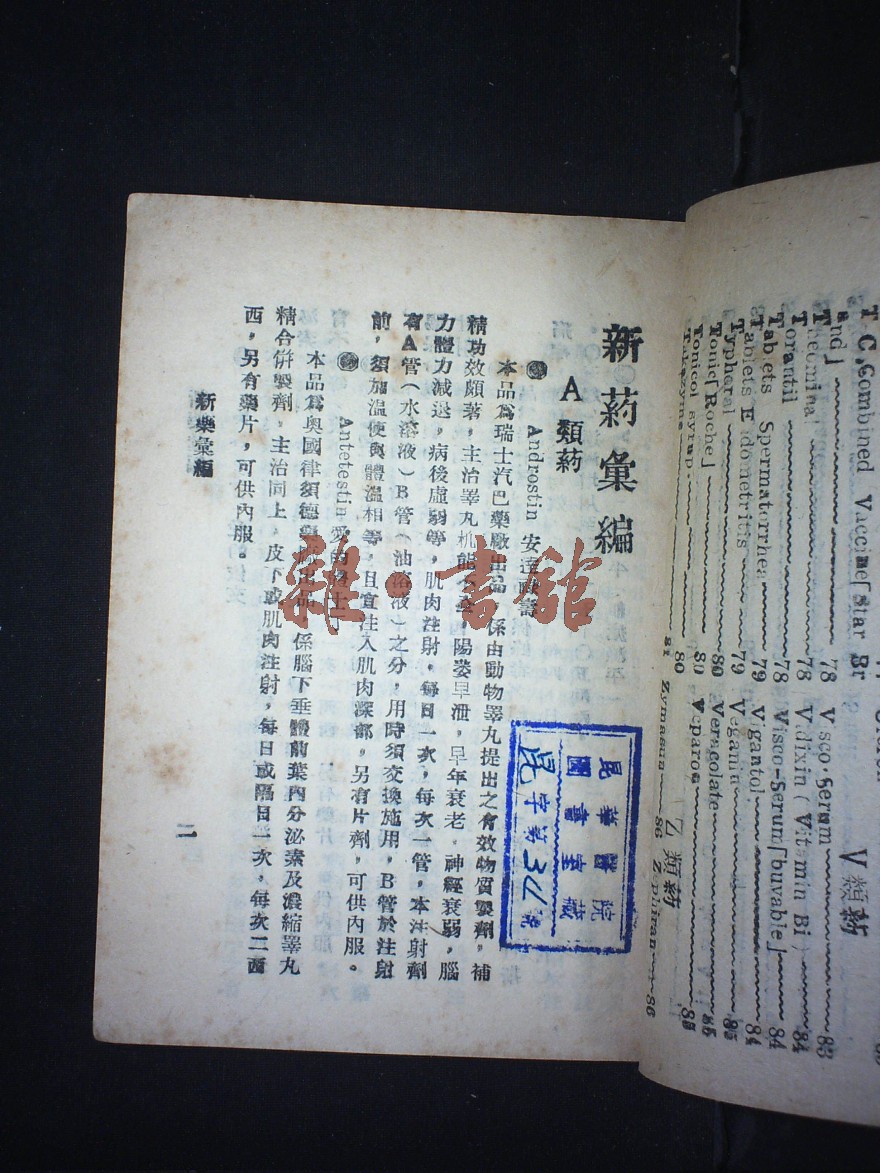 T.C.Combined Vaccine「Star Br
and」 78
Tecomina 78
Torantil 78
Tablets Spermatorrhea 79
Tablets Endometritis 79
Typheral 80
Tonic「Roche」 80
Tonicol syrup 80
Takazyma 81
V類新
Visco-Serum 83
Vidixin (Vitamin BI) 84
Visco-Serum「buvable」 84
Vigantol 84
Vegamin 85
Veracolate 85
Veparon 85
乙類葯
Zymasun 86
Zephiran 86
新葯彙編
A 類葯
Androstin 安達
本品爲瑞士汽巴藥廠出品，係由動物睪丸提出之有效物質製劑，補
精功效頗著，主治睪丸机能不全，陽萎早泄，早年衰老，神經衰弱，腦
力體力減退，病後虛弱等，肌肉注射，每日一次，每次一管，本注射劑
有A管（水溶液）B管（油溶液）之分，用時須交換施用，B管於注射
前，須加溫使與體溫相等，且宜注入肌肉深部，另有片劑，可供內服。
Antetestin 愛的
本品爲奧國律須德 出品，係腦下垂體前葉內分泌素及濃縮睪丸
精合併製劑，主治同上，皮下或肌肉注射，每日或隔日一次，每次二西
西，另有藥片，可供內服。
新藥彙編
二
昆華醫院
圖書室藏
昆字第34號
雜·書館